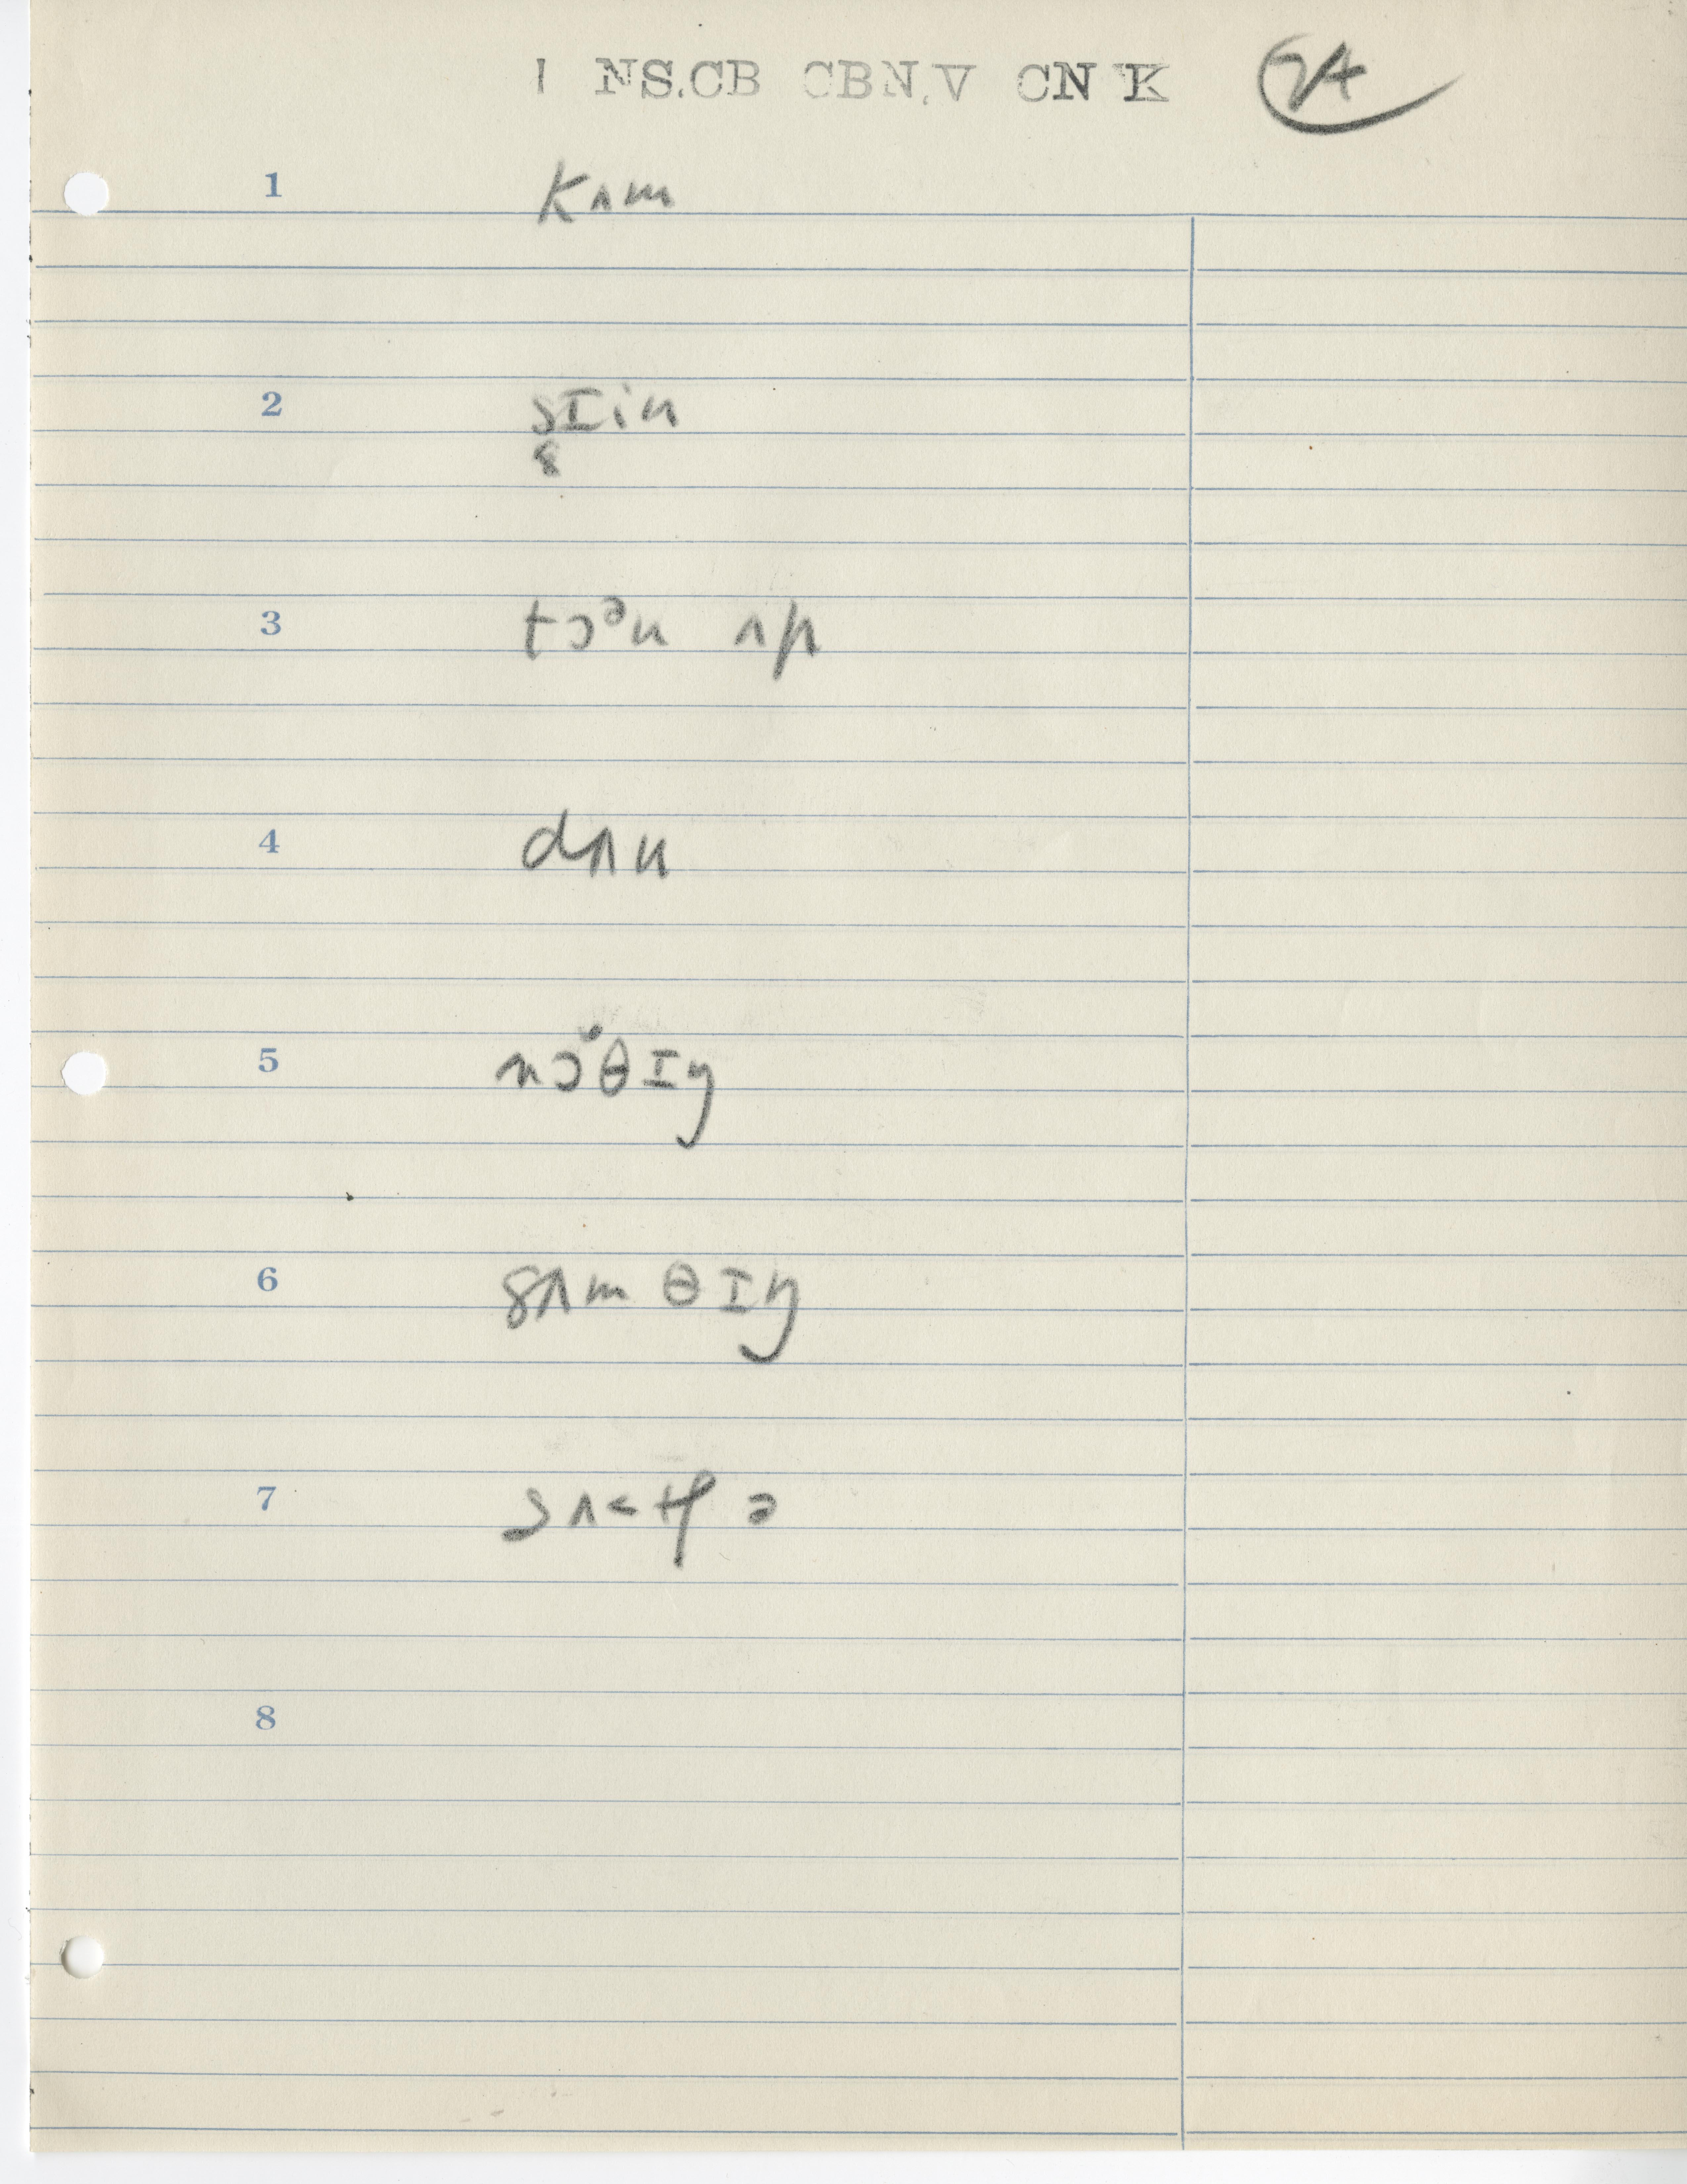 I NS.CB CBN.V CN K 74
1 kʌm
2 sIin
8
3 tɔᵊn ʌp
4 dʌn
5 nɔ̆θɪŋ
6 sʌmθɪŋ
7
8